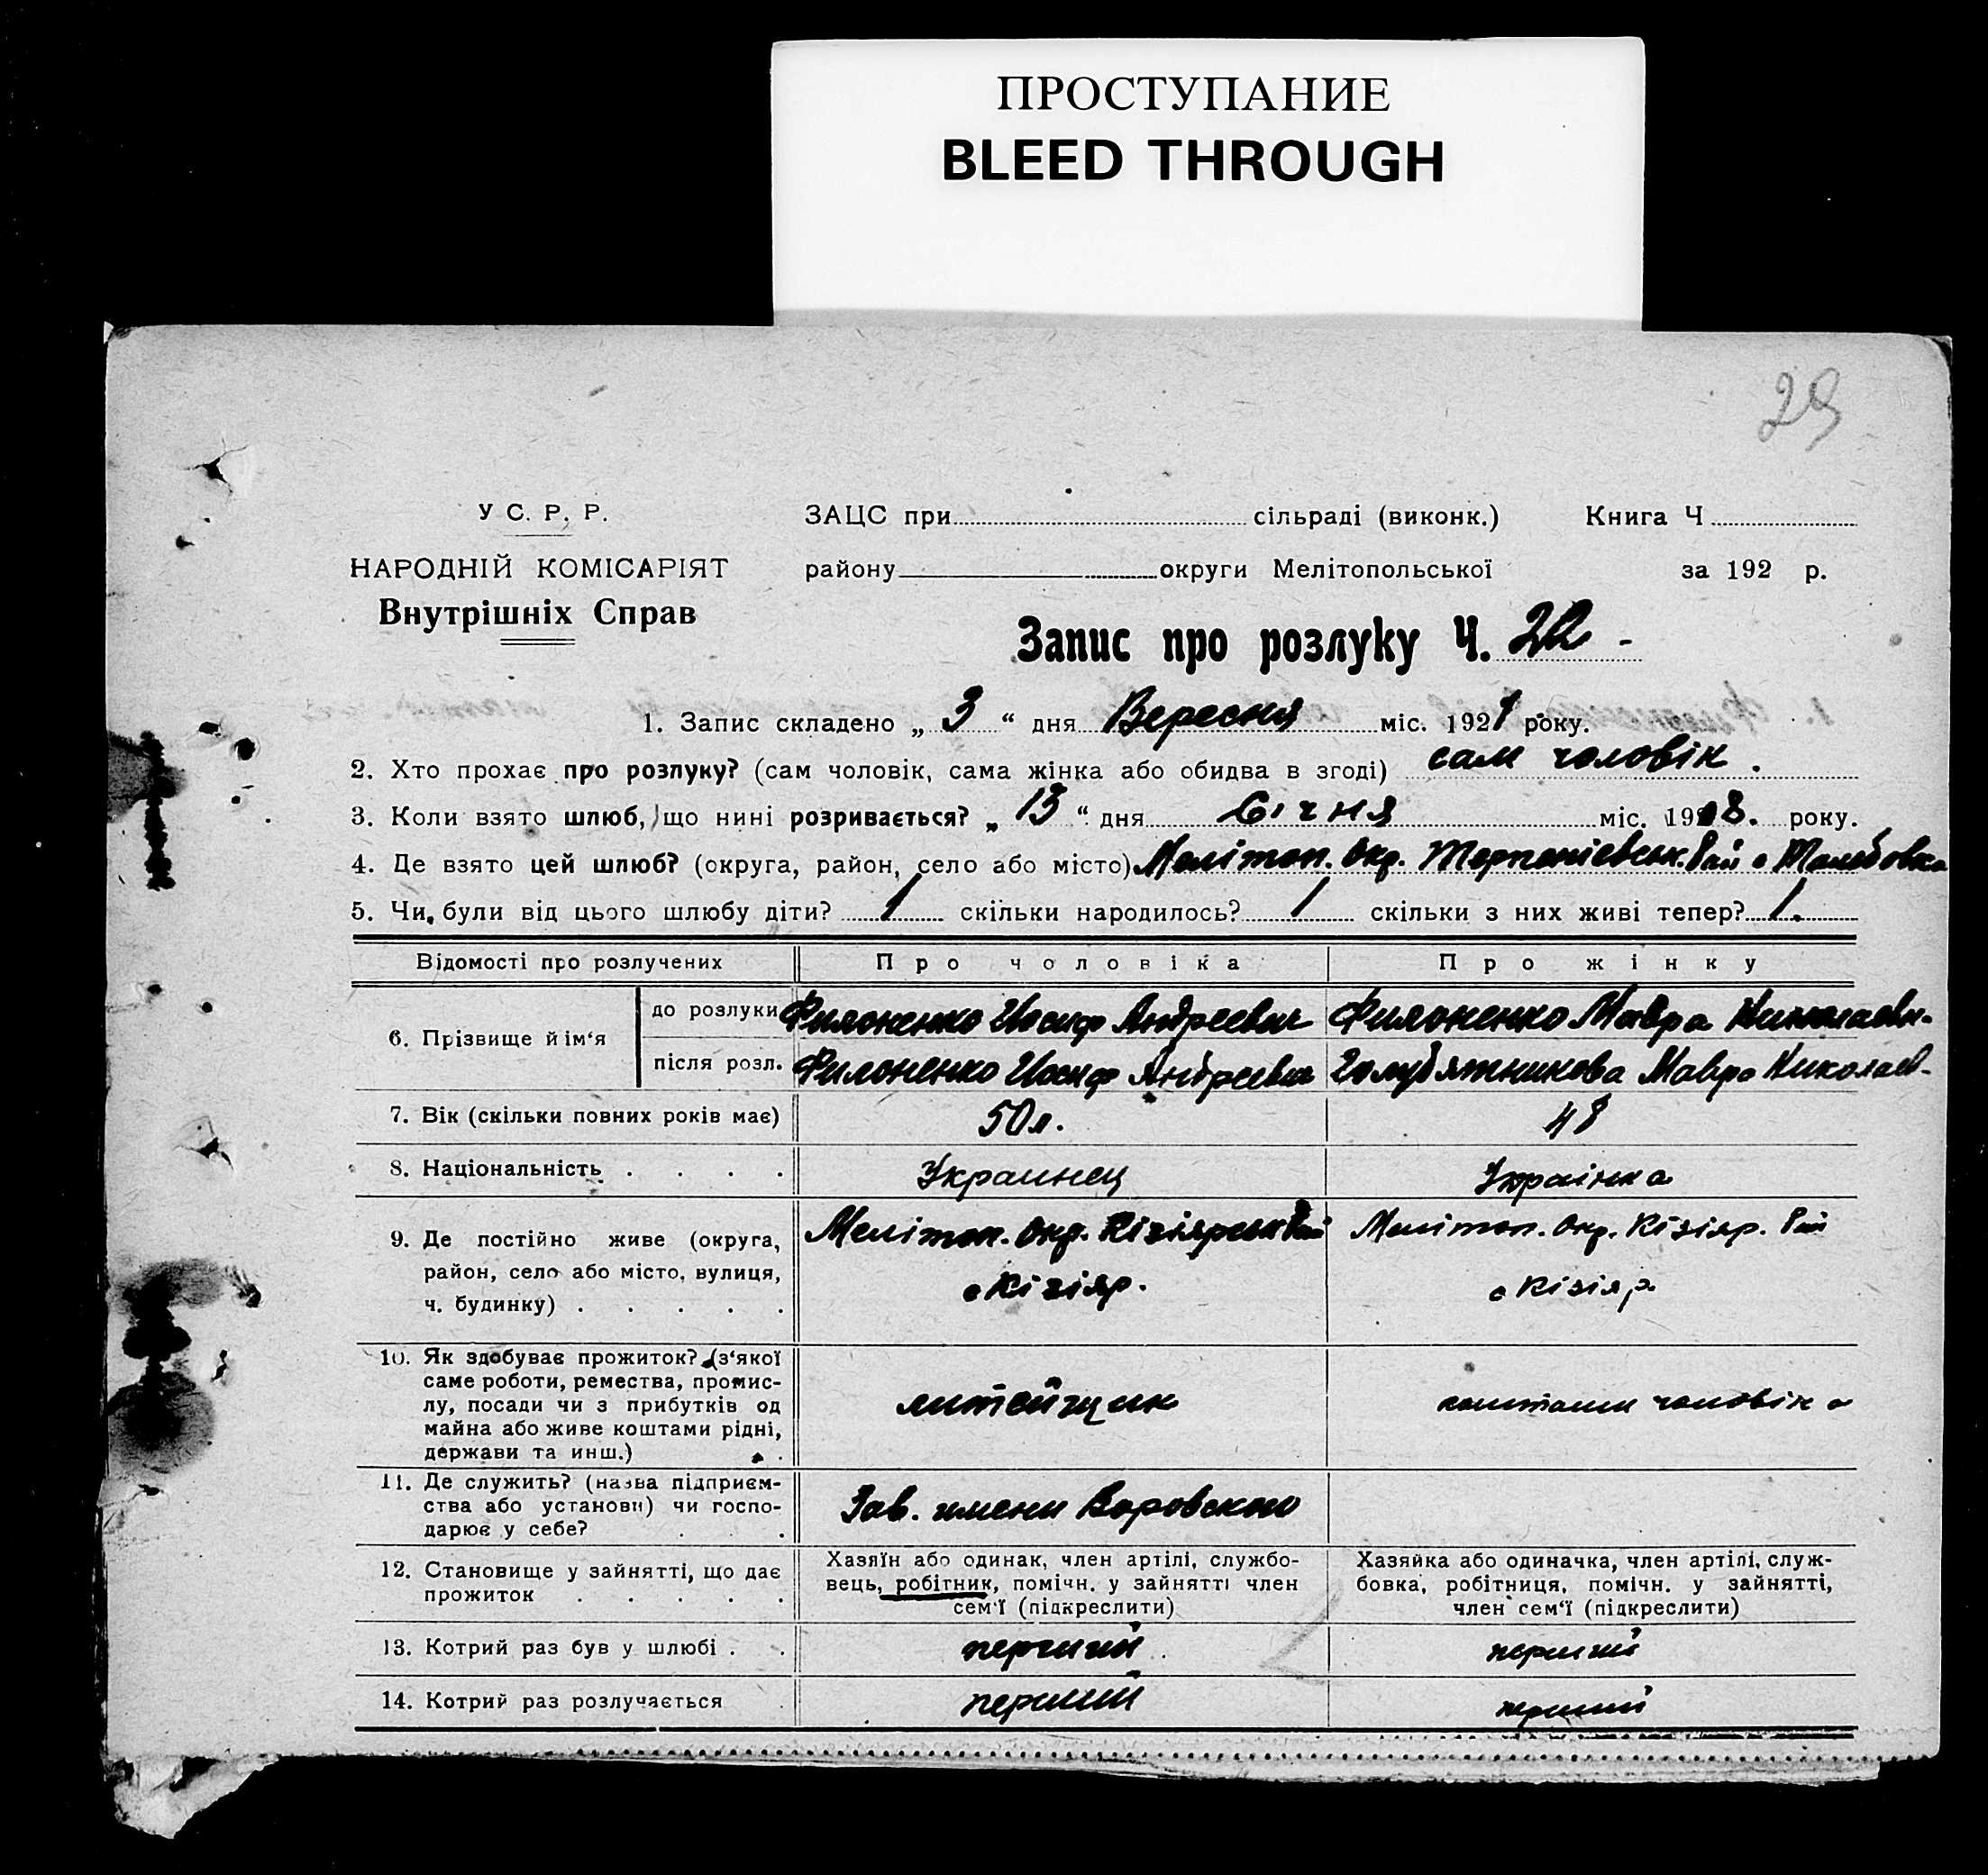 ПРОСТУПАНИЕ
BLEED THROUGH
29
У С. Р. Р.
ЗАЦС при сільраді (виконк.) Книга Ч
НАРОДНІЙ КОМІСАРІЯТ
району округи Мелітопольської за 192 р.
Внутрішніх Справ
Запис про розлуку Ч. 22 -
1. Запис складено „ 3 “ дня Вересня міс. 1927 року.
2. Хто прохає про розлуку? (сам чоловік, сама жінка або обидва в згоді) сам чоловік.
3. Коли взято шлюб, що нині розривається? „ 13 “ дня Січня міс. 1908. року.
4. Де взято цей шлюб? (округа, район, село або місто) Меліton. Окр. Терпеніевськ. Рай с
5. Чи були від цього шлюбу діти? 1 скільки народилось? 1 скільки з них живі тепер? 1.
Відомості про розлучених Про чоловіка Про жінку
6. Прізвище й ім‘я
до розлуки Филоненко Иосиф Андреевич Филоненко Мавра Николаевн.
після розл. Филоненко Иосиф Андреевич Голубятникова Мавра Николаев.
7. Вік (скільки повних років має) 50 л. 48
8. Національність . . . . Украинец Українка
9. Де постійно живе (округа, район, село або місто, вулиця, ч. будинку) . . . . .
Меліton. Окр. Кізіярськ Рай
с Кізіяр.
Меліton. Окр. Кізіяр. Рай
с Кізіяр
10. Як здобуває прожиток? (з‘якої
саме роботи, ремества, промис-
лу, посади чи з прибутків од
майна або живе коштами рідні,
держави та инш.) .
литейщик
коштами чоловіка
11. Де служить? (назва підприєм-
ства або установи) чи госпо-
дарює у себе? . .
Зав. имени Воровского
12. Становище у зайнятті, що дає
прожиток . . . . .
Хазяїн або одинак, член артілі, службо-
вець, робітник, помічн. у зайнятті член
сем‘ї (підкреслити)
Хазяйка або одиначка, член артілі, служ-
бовка, робітниця, помічн. у зайнятті,
член сем‘ї (підкреслити)
13. Котрий раз був у шлюбі . . перший перший
14. Котрий раз розлучається . перший перший